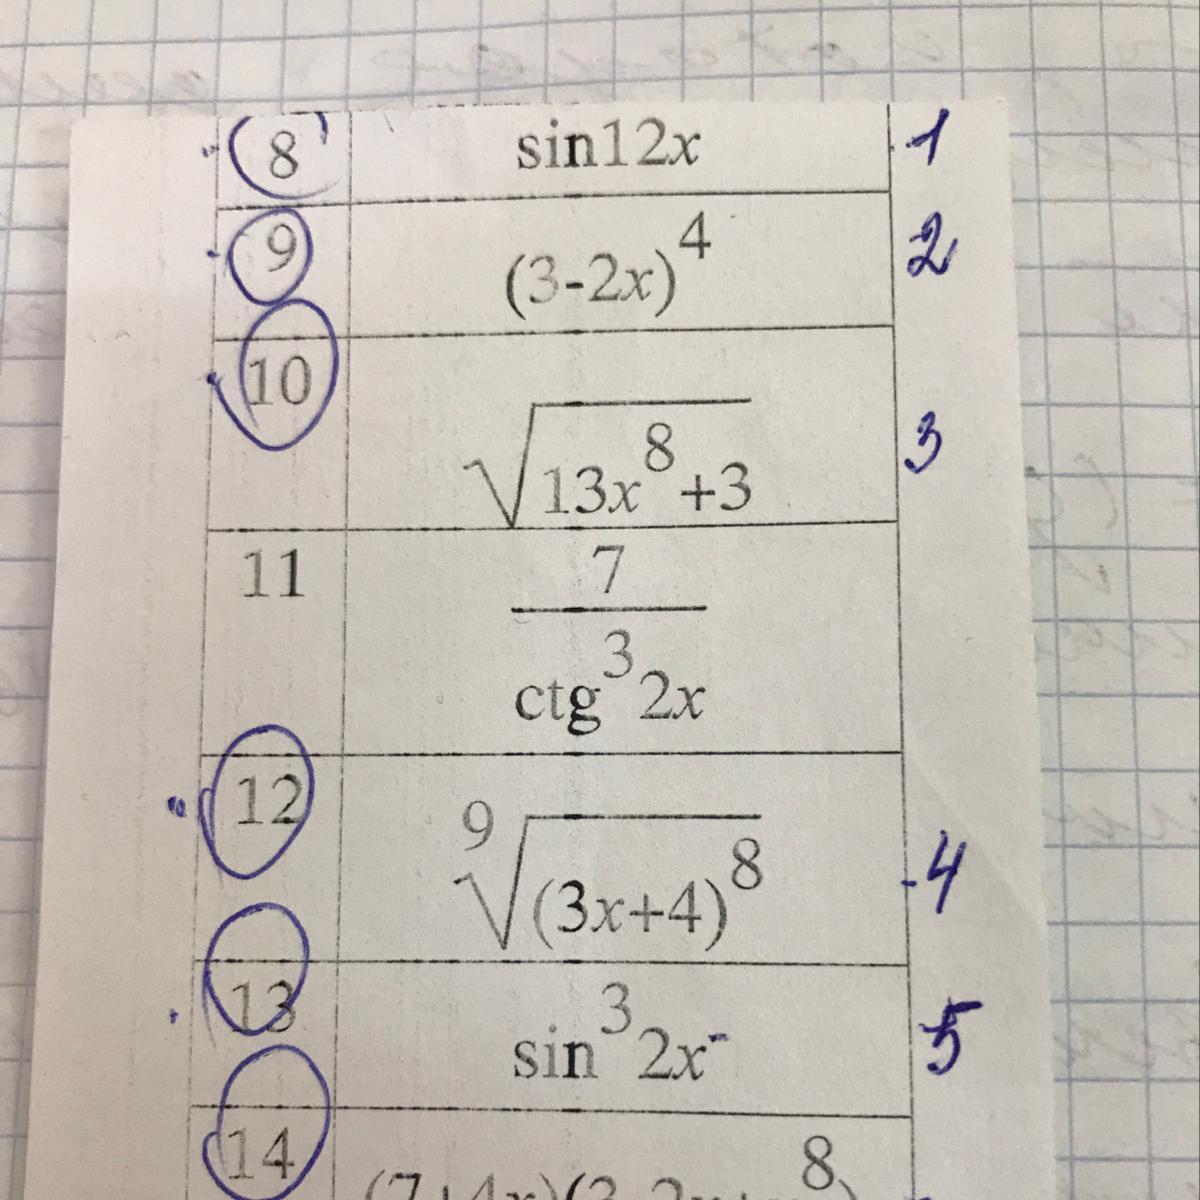 8 sin12x 1
9 (3-2x)^4 2
10 √(13x^8+3) 3
11 7/ctg^3 2x
12 ⁹√((3x+4)^8) 4
13 sin^3 2x 5
14